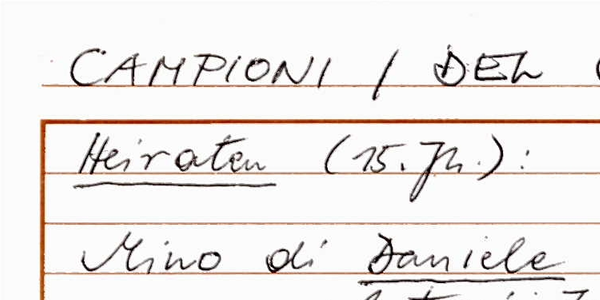 CAMPIONI / DEL
Heiraten (15. Jh.):
Mino di Daniele